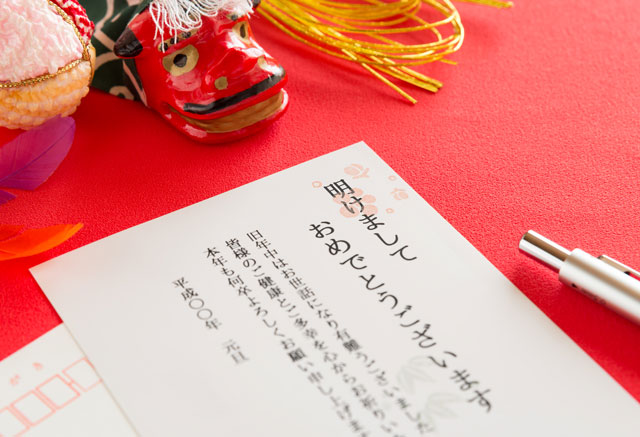 明けまして
おめでとうございます
旧年中はお世話になり有難うございました
皆様のご健康とご多幸を心からお祈りい
本年も何卒よろしくお願い申し上げま
平成〇〇年 元旦
がき